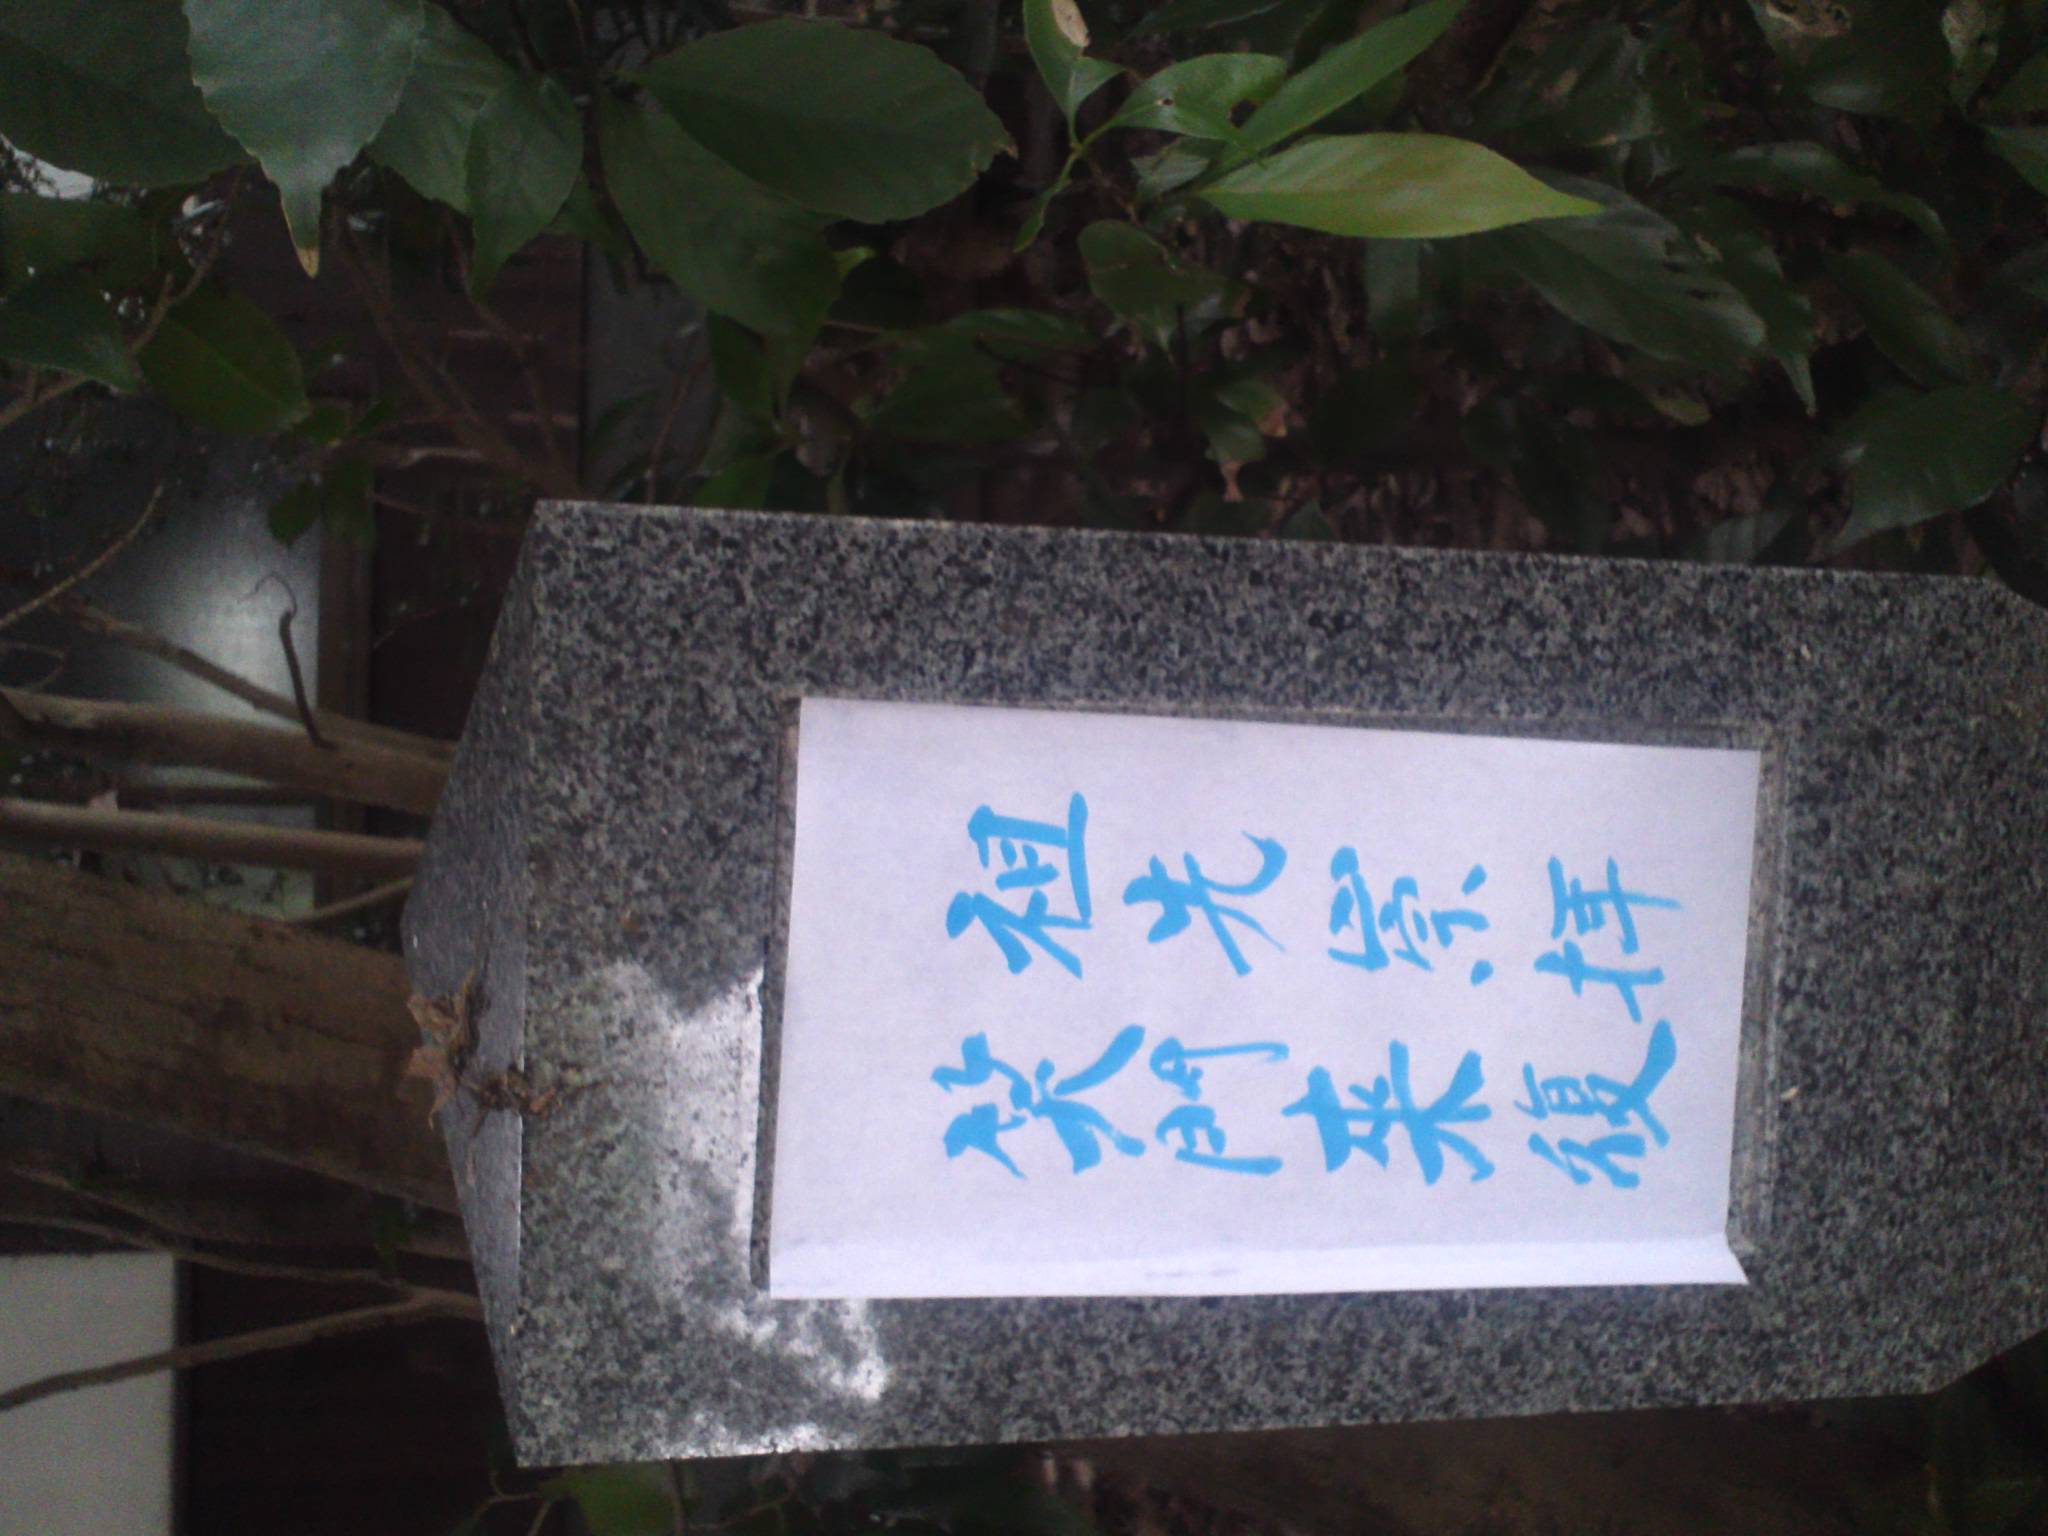 祖先崇拝
笑門来復